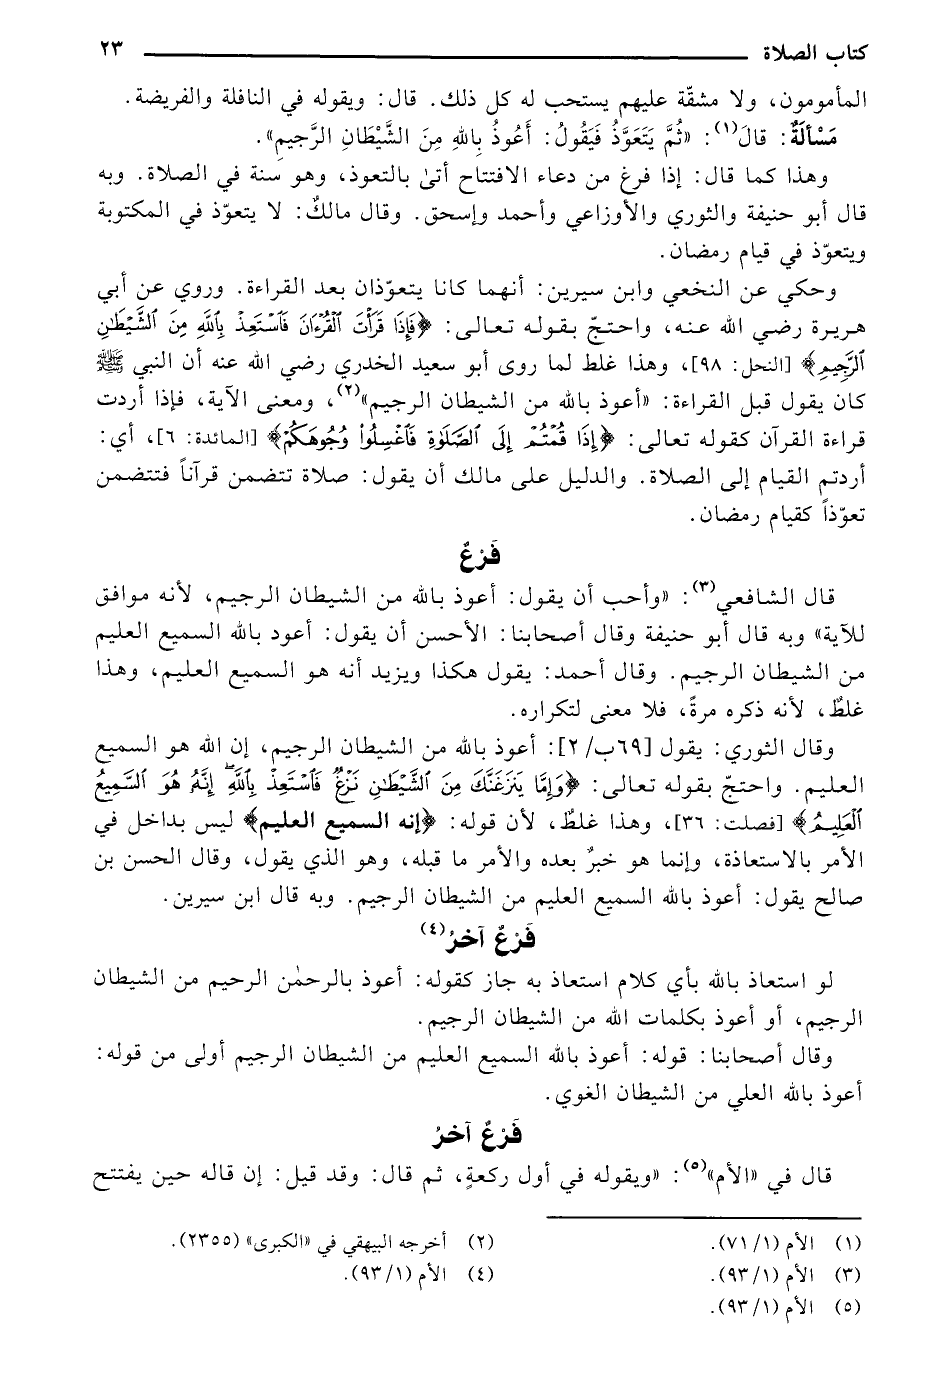 كتاب الصلاة ٢٣
المأمومون، ولا مشقّة عليهم يستحب له كل ذلك. قال: ويقوله في النافلة والفريضة.
مَسْألَةٌ: قالَ(١): «ثُمَّ يَتَعَوَّذُ فَيَقُولُ: أَعُوذُ بِاللهِ مِنَ الشَّيْطَانِ الرَّجيمِ».
وهذا كما قال: إذا فرغ من دعاء الافتتاح أتىٰ بالتعوذ، وهو سنة في الصلاة. وبه
قال أبو حنيفة والثوري والأوزاعي وأحمد وإسحق. وقال مالكٌ: لا يتعوّذ في المكتوبة
ويتعوّذ في قيام رمضان.
وحكي عن النخعي وابن سيرين: أنهما كانا يتعوّذان بعد القراءة. وروي عن أبي
هريرة رضي الله عنه، واحتجّ بقوله تعالى: ﴿فَإِذَا قَرَأْتَ ٱلْقُرْءَانَ فَٱسْتَعِذْ بِٱللَّهِ مِنَ ٱلشَّيْطَٰنِ
ٱلرَّجِيمِ﴾ [النحل: ٩٨]، وهذا غلط لما روى أبو سعيد الخدري رضي الله عنه أن النبي ﷺ
كان يقول قبل القراءة: «أعوذ بالله من الشيطان الرجيم»(٢)، ومعنى الآية، فإذا أردت
قراءة القرآن كقوله تعالى: ﴿إِذَا قُمْتُمْ إِلَى ٱلصَّلَوٰةِ فَٱغْسِلُوا۟ وُجُوهَكُمْ﴾ [المائدة: ٦]، أي:
أردتم القيام إلى الصلاة. والدليل على مالك أن يقول: صلاة تتضمن قرآناً فتتضمن
تعوّذاً كقيام رمضان.
فَرْعٌ
قال الشافعي(٣): «وأحب أن يقول: أعوذ بالله من الشيطان الرجيم، لأنه موافق
للآية» وبه قال أبو حنيفة وقال أصحابنا: الأحسن أن يقول: أعود بالله السميع العليم
من الشيطان الرجيم. وقال أحمد: يقول هكذا ويزيد أنه هو السميع العليم، وهذا
غلطٌ، لأنه ذكره مرةً، فلا معنى لتكراره.
وقال الثوري: يقول [٦٩ب/ ٢]: أعوذ بالله من الشيطان الرجيم، إن الله هو السميع
العليم. واحتجّ بقوله تعالى: ﴿وَإِمَّا يَنزَغَنَّكَ مِنَ ٱلشَّيْطَٰنِ نَزْغٌ فَٱسْتَعِذْ بِٱللَّهِ ۖ إِنَّهُۥ هُوَ ٱلسَّمِيعُ
ٱلْعَلِيمُ﴾ [فصلت: ٣٦]، وهذا غلطٌ، لأن قوله: ﴿إنه السميع العليم﴾ ليس بداخل في
الأمر بالاستعاذة، وإنما هو خبرٌ بعده والأمر ما قبله، وهو الذي يقول، وقال الحسن بن
صالح يقول: أعوذ بالله السميع العليم من الشيطان الرجيم. وبه قال ابن سيرين.
فَرْعٌ آخرُ(٤)
لو استعاذ بالله بأي كلام استعاذ به جاز كقوله: أعوذ بالرحمٰن الرحيم من الشيطان
الرجيم، أو أعوذ بكلمات الله من الشيطان الرجيم.
وقال أصحابنا: قوله: أعوذ بالله السميع العليم من الشيطان الرجيم أولى من قوله:
أعوذ بالله العلي من الشيطان الغوي.
فَرْعٌ آخرُ
قال في «الأم»(٥): «ويقوله في أول ركعةٍ، ثم قال: وقد قيل: إن قاله حين يفتتح
(١) الأم (١/ ٧١).
(٢) أخرجه البيهقي في «الكبرى» (٢٣٥٥).
(٣) الأم (١/ ٩٣).
(٤) الأم (١/ ٩٣).
(٥) الأم (١/ ٩٣).